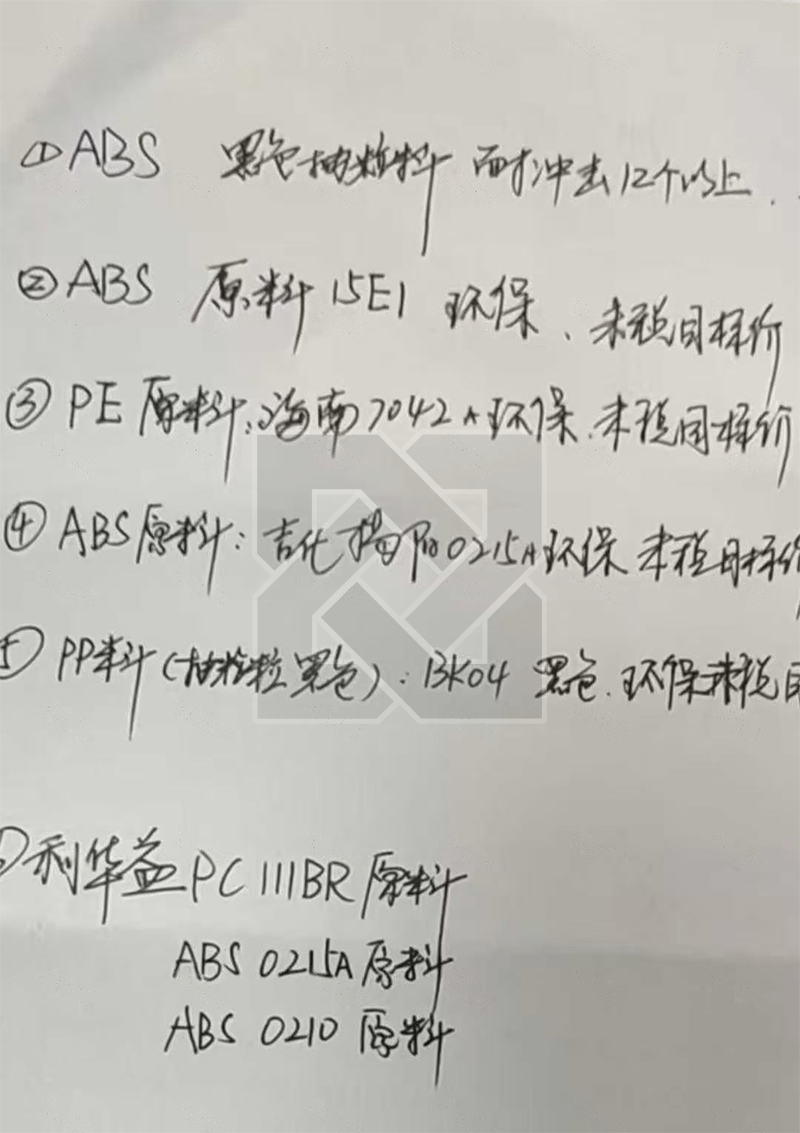 ①ABS 黑色抽粒料 耐冲击12个以上.
②ABS 原料15E1 环保、未税目标价
③PE原料:海南7042 环保.未税目标价
④ABS原料:吉化揭阳0215A环保 未税目标价
⑤PP料(抽粒黑色):BK04 黑色.环保未税目
利华益PC111BR原料
ABS 0215A原料
ABS 0210 原料